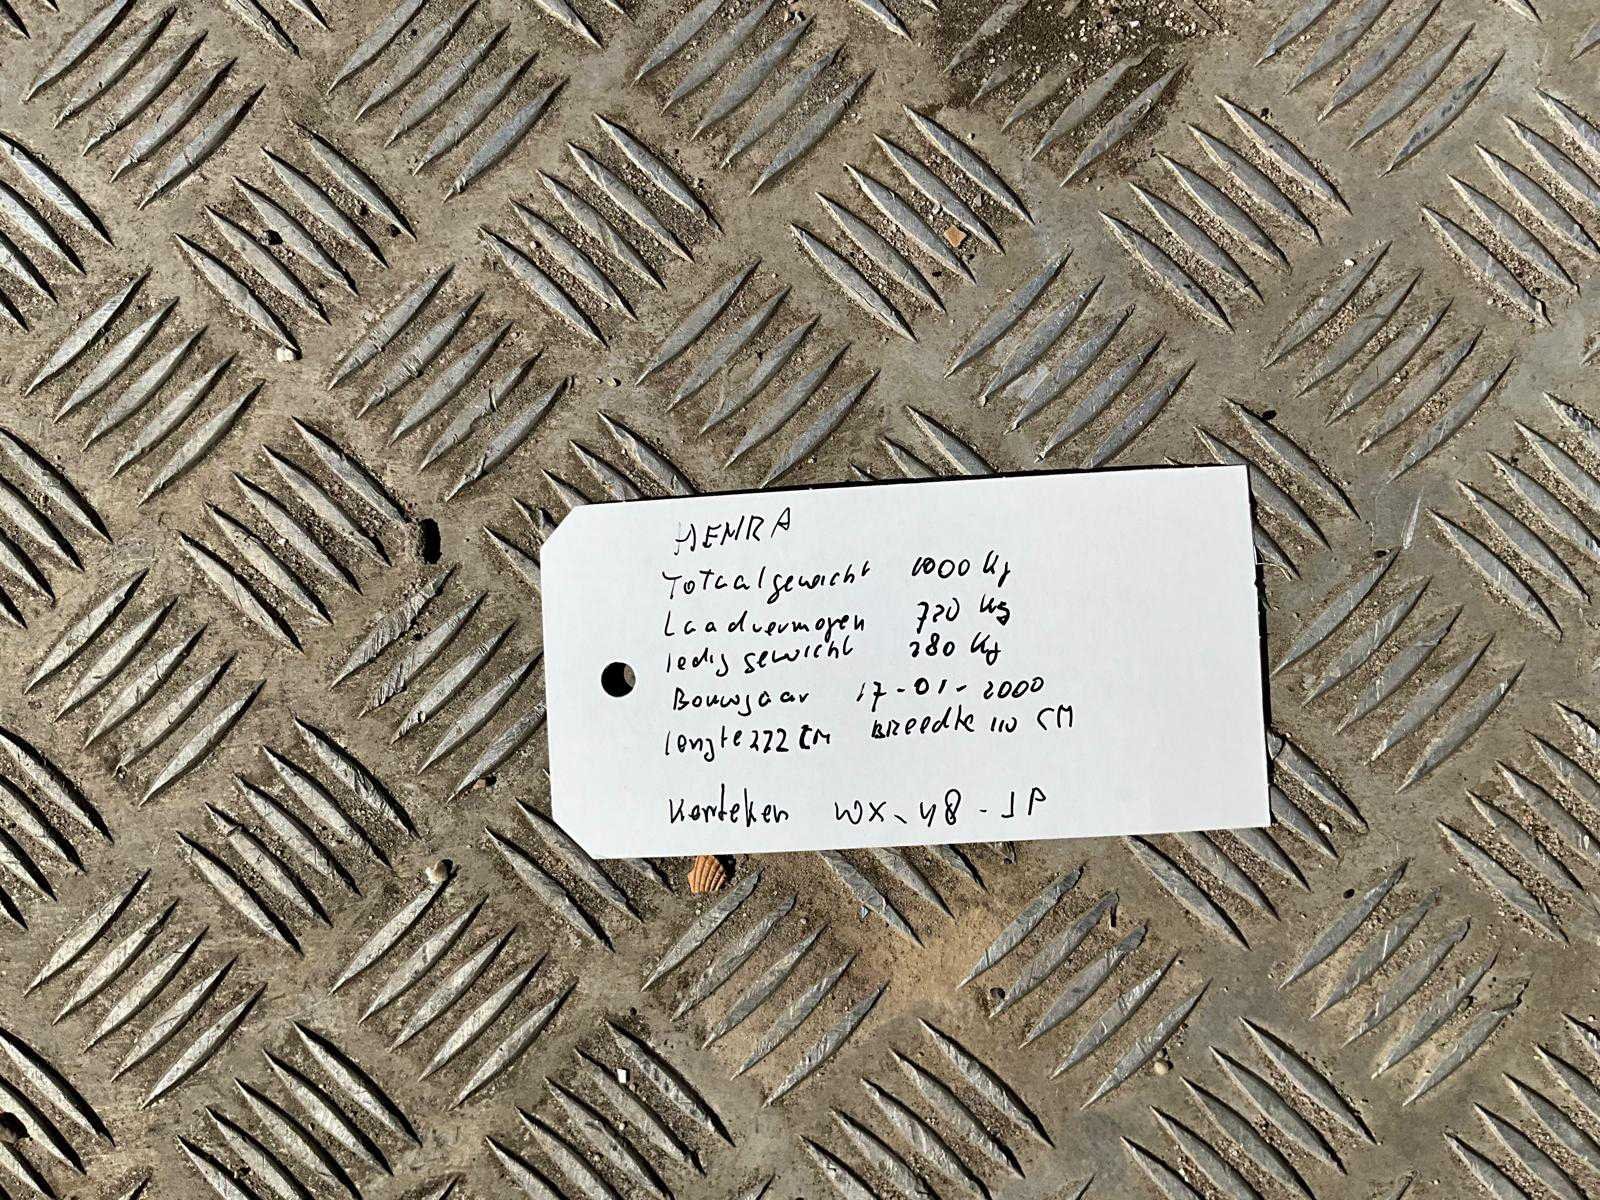 HENRA
Totaalgewicht 1000 Kg
Laadvermogen 720 Kg
ledig gewicht 280 Kg
Bouwjaar 17-01-2000
lengte 272 CM BREEDte 110 CM
Kenteken WX-48-JP